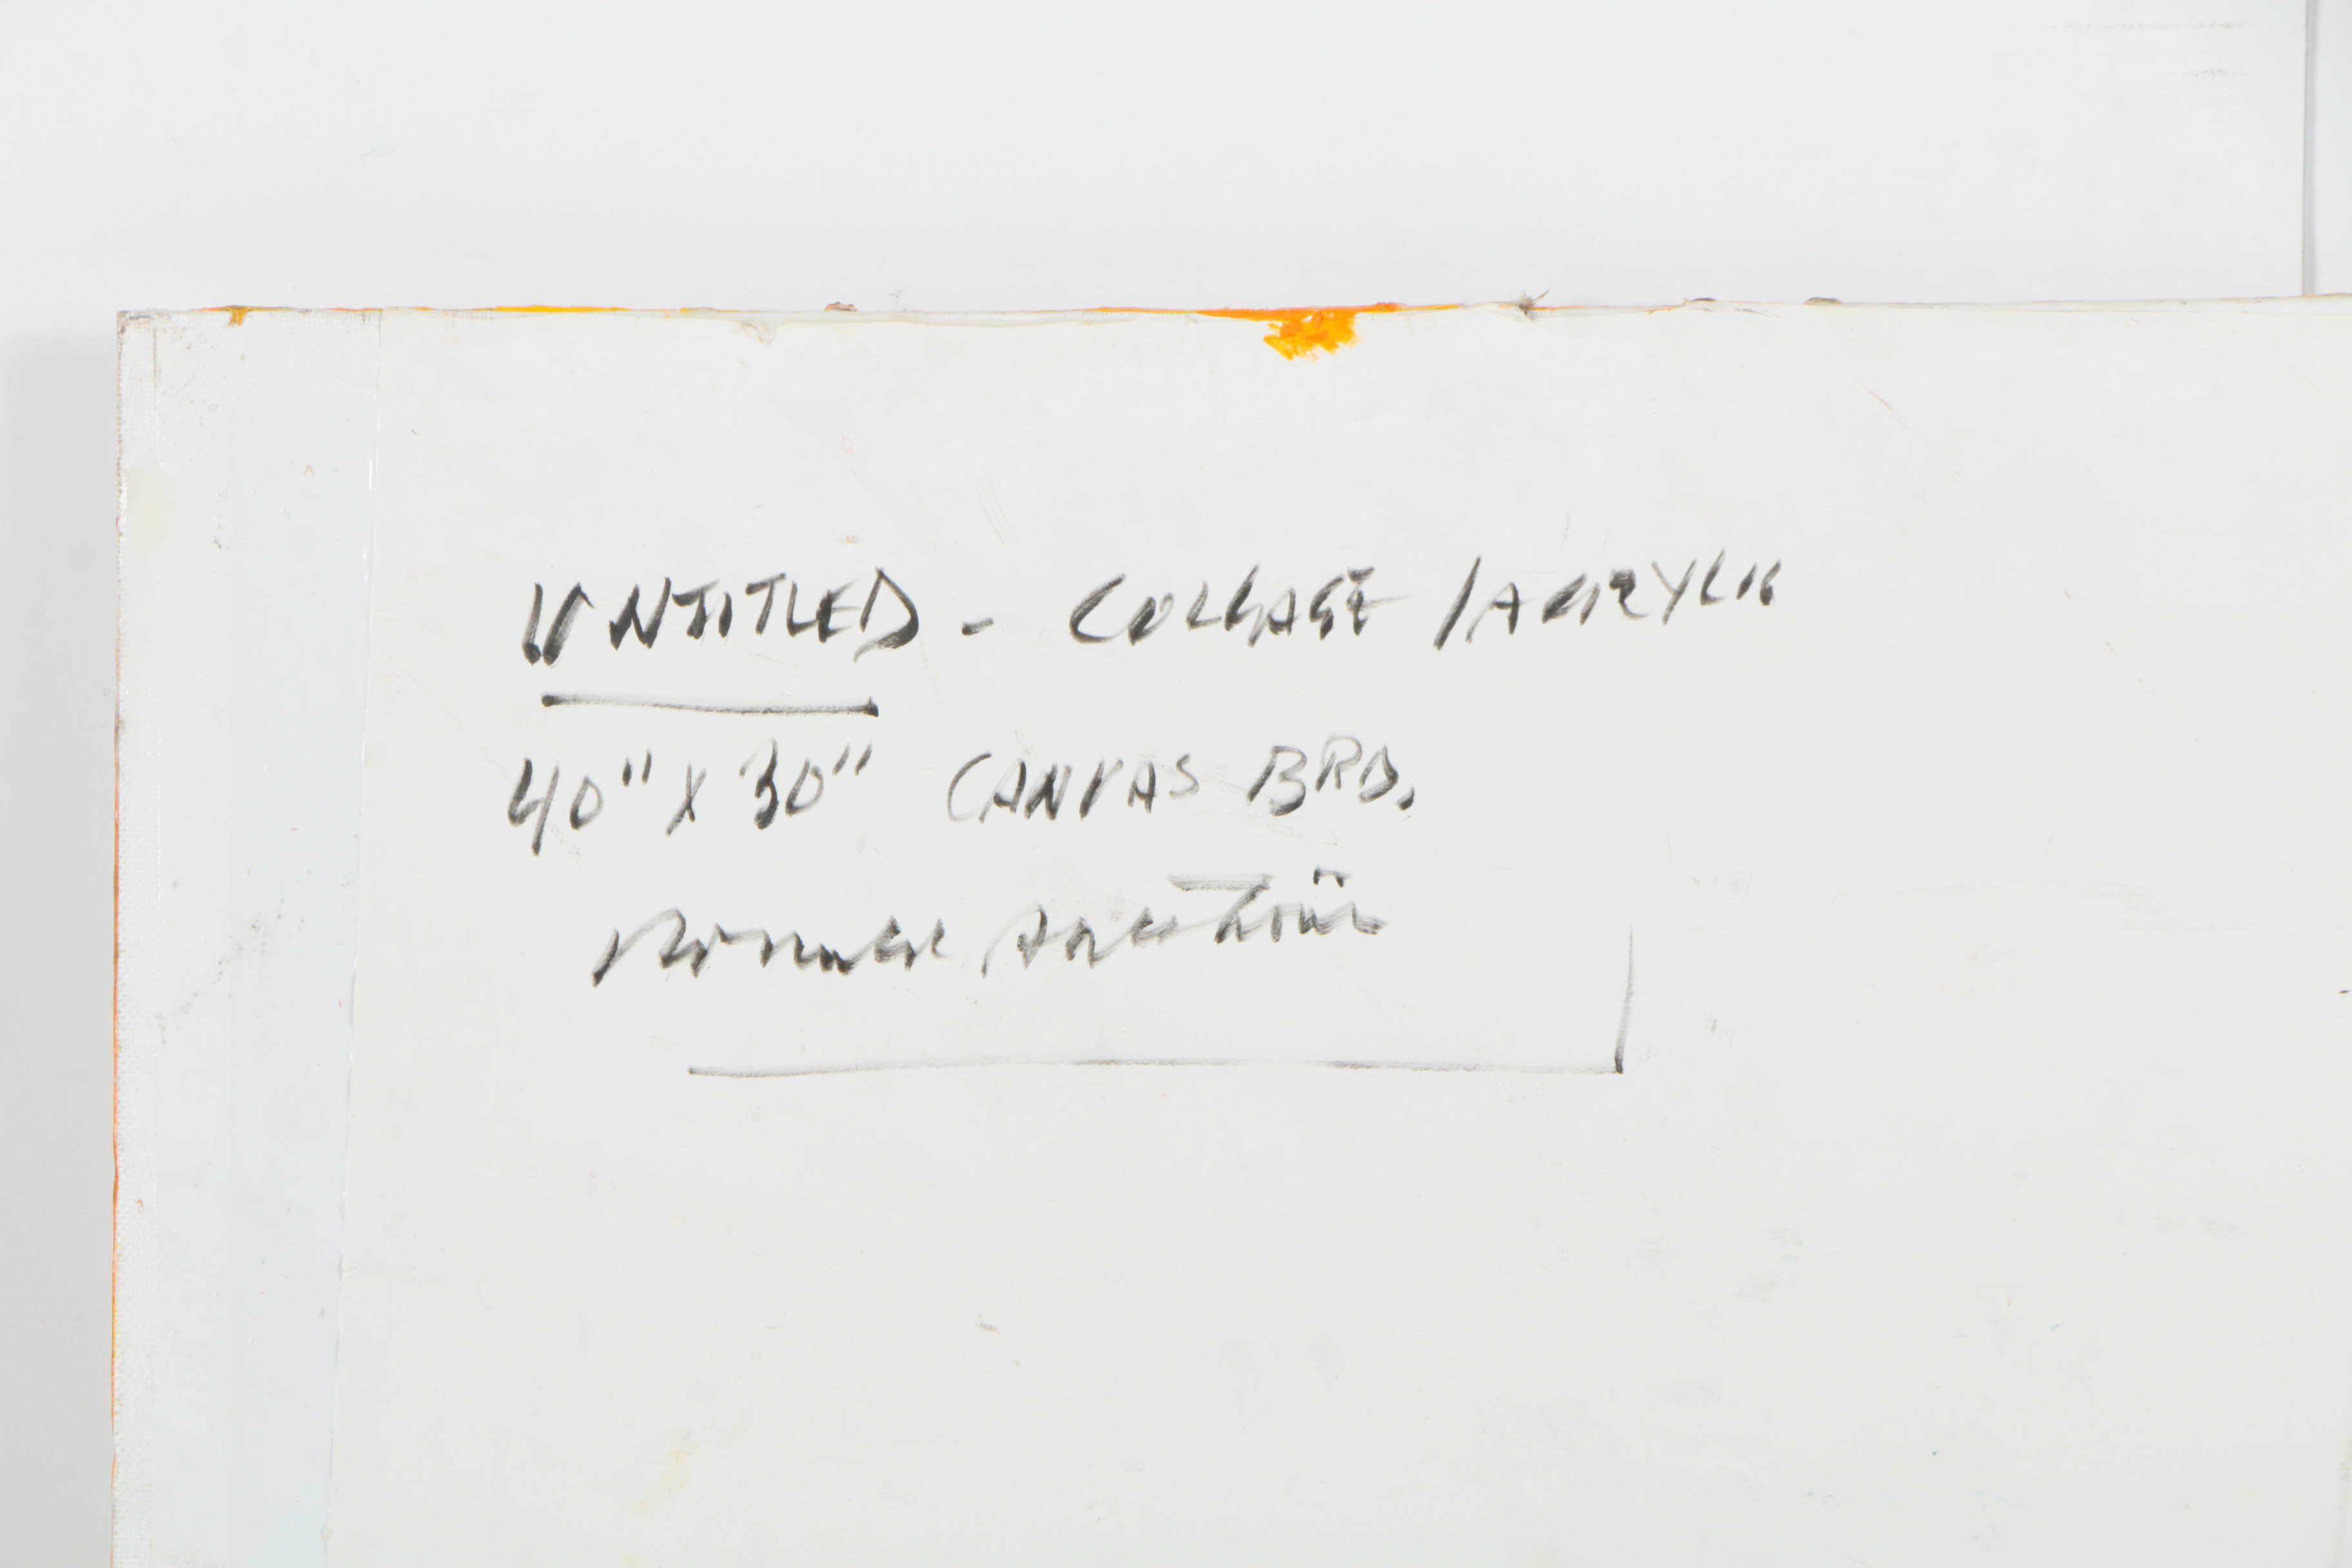 UNTITLED - COLLAGE / ACRYLIC
40" X 30" CANVAS BRD.